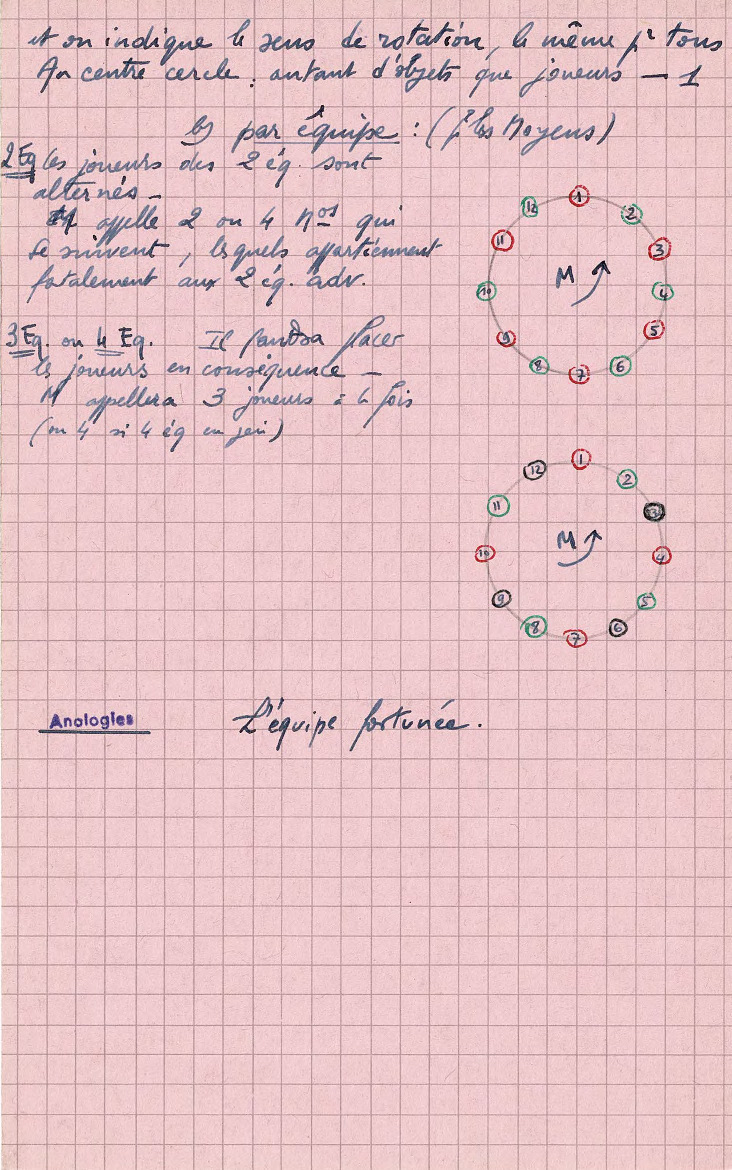 et on indique le sens de rotation, le même pr tous
Au centre cercle : autant d'objets que joueurs — 1
b) par équipe : (pr les Moyens)
2 Eq Les joueurs des 2 éq. sont
alternés —
M appelle 2 ou 4 nos qui
se suivent, lesquels appartiennent
fatalement aux 2 éq. adv.
3 Eq. ou 4 Eq. Il faudra placer
les joueurs en conséquence —
M appellera 3 joueurs à la fois
(ou 4 si 4 éq en jeu)
1
2
3
4
5
6
7
8
9
10
11
12
M
1
2
3
4
5
6
7
8
9
10
11
12
M
Analogies L'équipe fortunée.